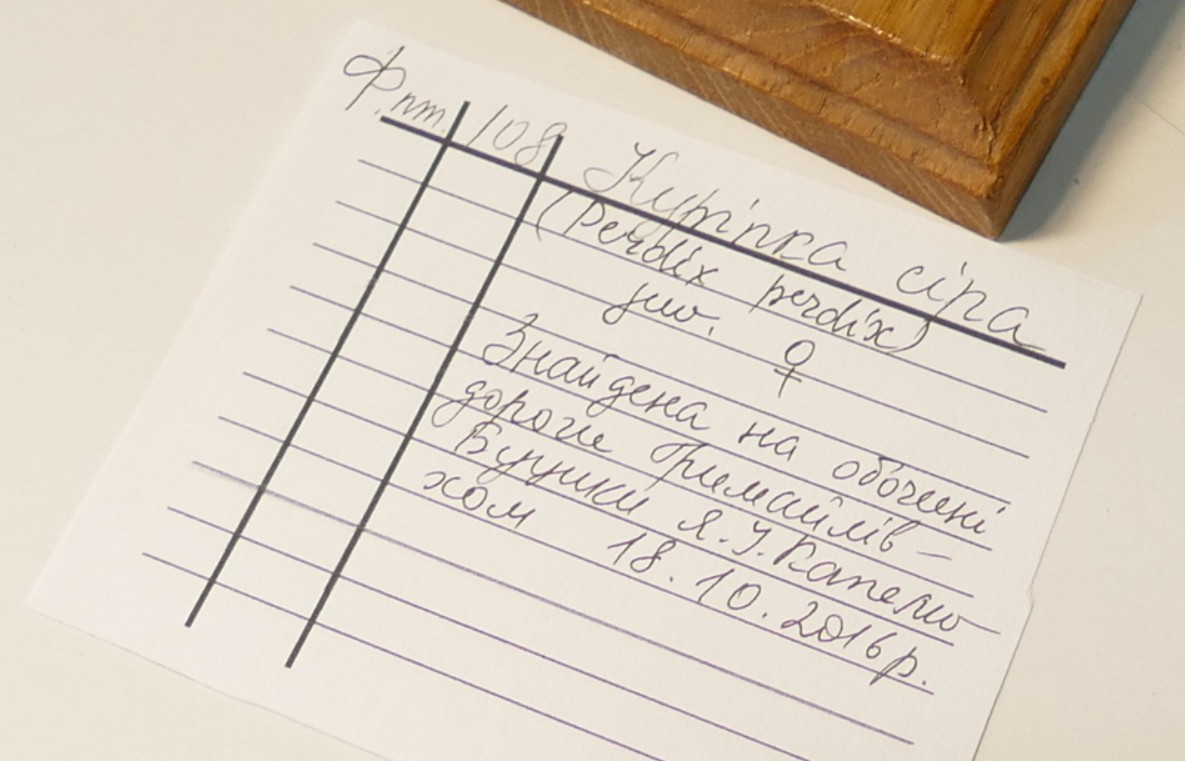 Ф.пт. 108 Куріпка сіра
(Perdix perdix)
juv. ♀
Знайдена на обочині
дороги Гримайлів –
Буцики Я.І. Капелю-
хом 18.10.2016р.